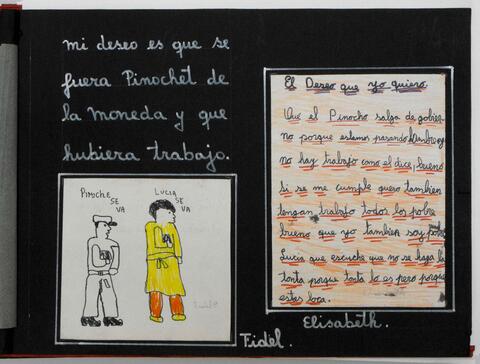 mi deseo es que se
fuera Pinochet de
la moneda y que
hubiera trabajo.
PINOCHE
SE
VA
LUCIA
SE
VA
Fidel.
El Deseo que yo quiero.
Que el Pinocho salga de gobier
no porque estamos pasando hambre y
no hay trabajo como el dice, bueno
si se me cumple quero tambien
tengan trabajo todos los pobre
bueno que yo tambien soy pobre
Lucia que escuche que no se haga la
tonta porque tonta lo es pero porque
estas loca.
Elisabeth.